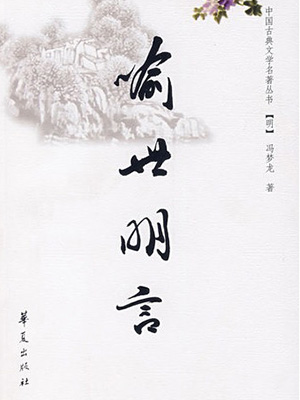 中国古典文学名著丛书
【明】 冯梦龙 著
喻世明言
華夏出版社